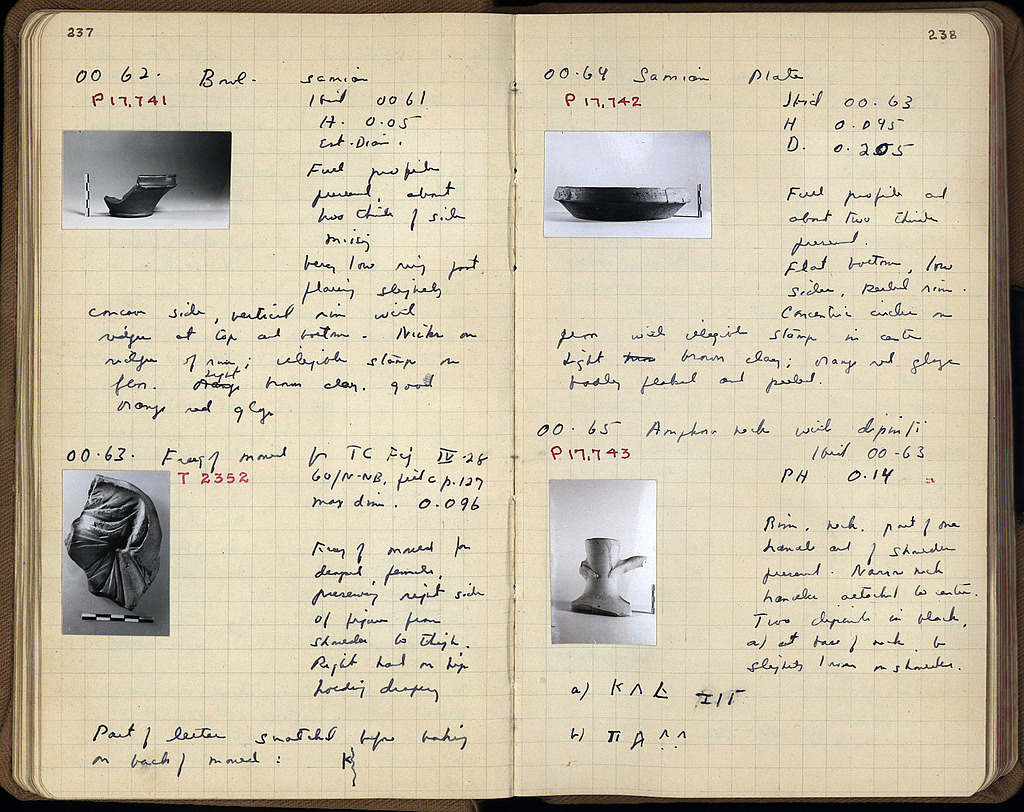 237
00 62. Bowl. samian
P 17,741
Ibid 0061
H. 0.05
Est. Diam.
Full profile
present, about
two thirds of side
missing
Very low ring foot
flaring slightly
concave side, vertical rim with
ridges at top and bottom. on
ridge of rim; illegible stamp on
floor. light brown clay. good
orange red glaze
00.63. Frag of mould for TC Fig IV-28
T 2352
60/N-NB, p. 127
max dim. 0.096
Frag of mould for
draped, female,
preserving right side
of figure from
shoulder to thigh.
Right hand on hip
holding drapery
Part of letter before baking
on back of mould: K
238
00.64 Samian Plate
P 17,742
Ibid 00.63
H 0.045
D. 0.205
Full profile and
about two thirds
present.
Flat bottom, low
sides, rim.
Concentric circles on
floor with illegible stamp in center
Light brown clay; orange red glaze
badly flaked and peeled.
00.65 Amphora neck with dipinti
P 17,743
Ibid 00-63
PH 0.14
Rim, neck, part of one
handle and of shoulder
present. Narrow neck
handles attached to center.
Two dipinti in black,
a) at base of neck, b
slightly lower on shoulder.
a) Κ Λ
b) π Α